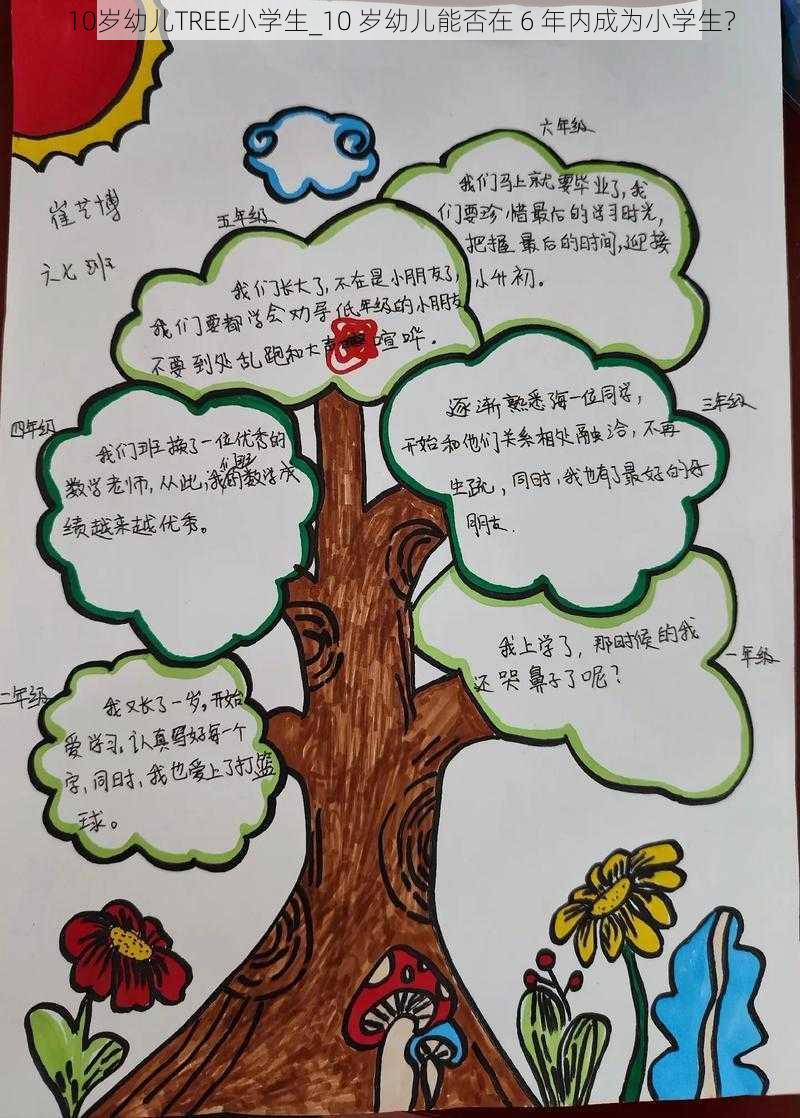 10岁幼儿TREE小学生_10 岁幼儿能否在 6 年内成为小学生?
六年级
我们马上就要毕业了,我
们要珍惜最后的学习时光,
把握最后的时间,迎接
小升初。
崔艺博
六七班
五年级
我们长大了,不在是小朋友了,
我们要都学会劝导低年级的小朋友
不要到处乱跑和大声喧哗.
四年级
我们班换了一位优秀的
数学老师,从此,我们班的数学成
绩越来越优秀。
三年级
逐渐熟悉每一位同学,
开始和他们关系相处融洽,不再
生疏,同时,我也有了最好的好
朋友.
二年级
我又长了一岁,开始
爱学习,认真写好每一个
字,同时,我也爱上了打篮
球。
一年级
我上学了,那时候的我
还哭鼻子了呢?